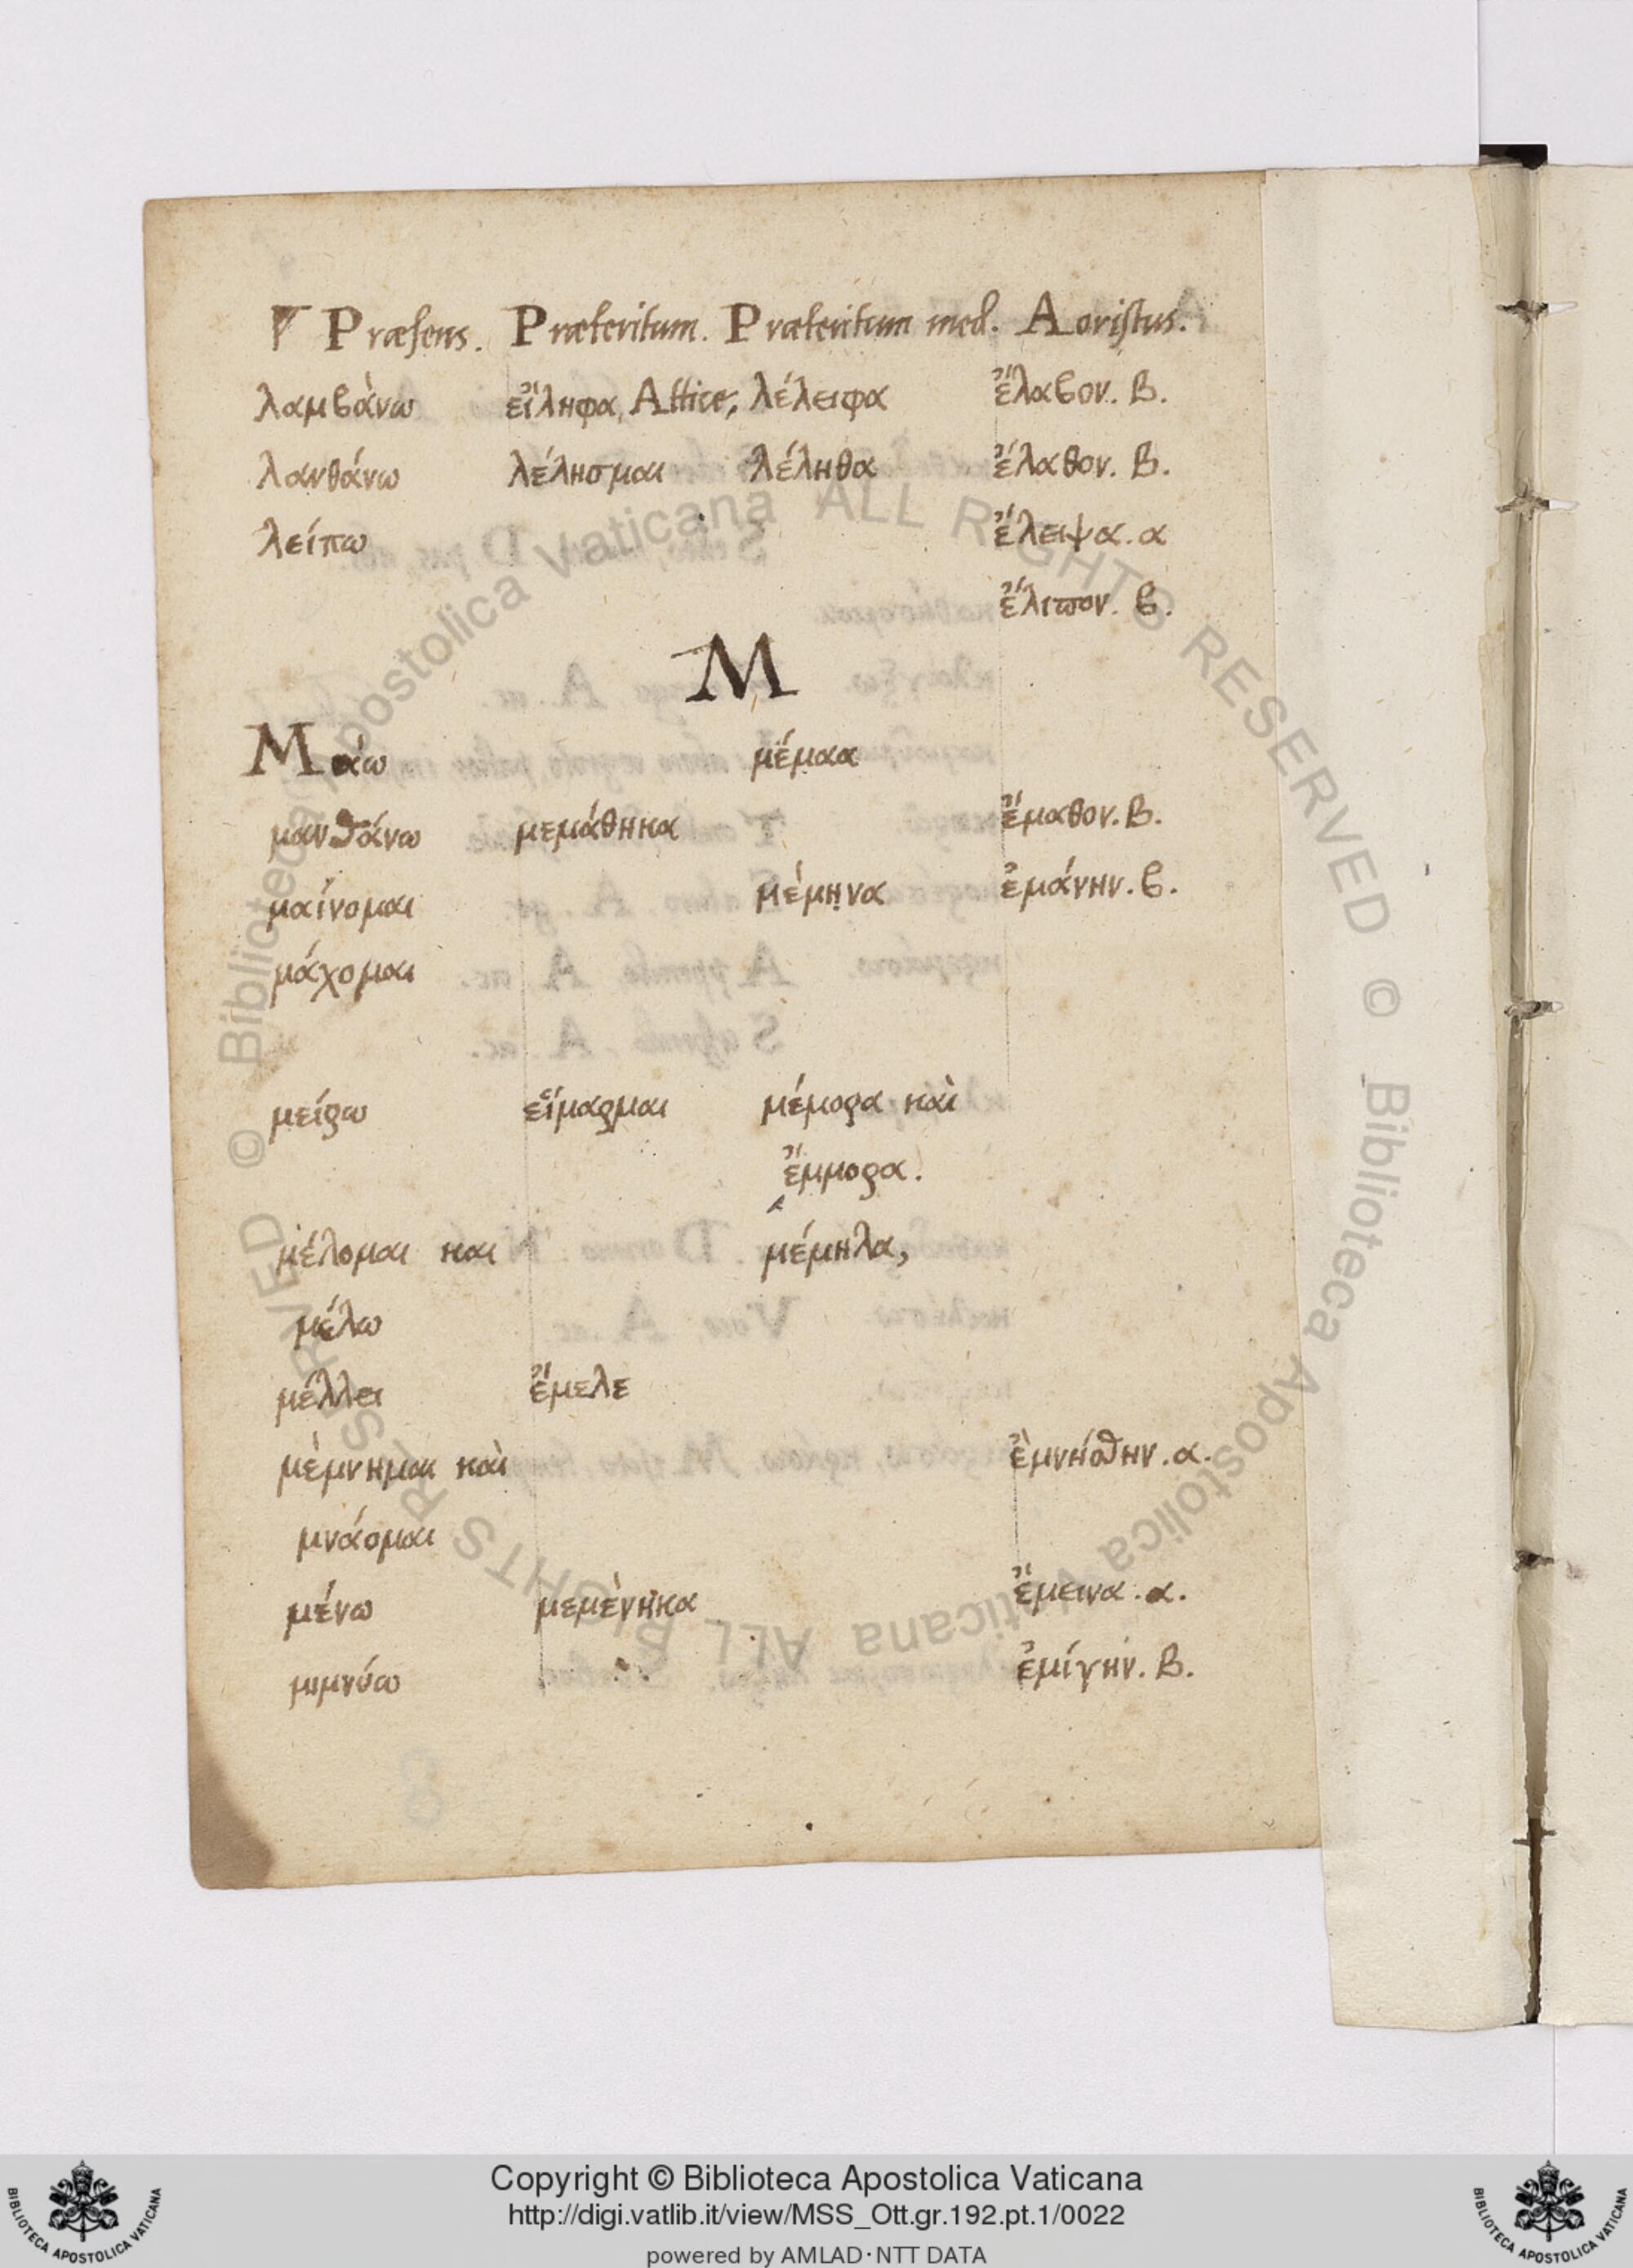 Præsens. Præteritum. Præteritum med. Aoristus.
λαμβὰνω εἴληφα, Attice, λέλειφα ἔλαβον. β.
λανθάνω λέλησμαι λέληθα ἔλαθον. β.
λείπω ἔλειψα. α
ἔλιπον. β.
M
Μάω μέμαα
μανθάνω μεμάθηκα ἔμαθον. β.
μαίνομαι μέμηνα ἐμάνην. β.
μάχομαι
μείρω εἵμαρμαι μέμορα καὶ
ἔμμορα.
μέλομαι και μέμηλα,
μέλω
μέλλει ἔμελε
μὲμνημαι καὶ ἐμνήσθην. α.
μνάομαι
μένω μεμὲνηκα ἔμεινα. α.
μιμνύω ἐμίγην. β.
Copyright © Biblioteca Apostolica Vaticana
http://digi.vatlib.it/view/MSS_Ott.gr.192.pt.1/0022
powered by AMLAD·NTT DATA
BIBLIOTECA APOSTOLICA VATICANA
BIBLIOTECA APOSTOLICA VATICANA
© Biblioteca Apostolica Vaticana ALL RIGHTS RESERVED
© Biblioteca Apostolica Vaticana ALL RIGHTS RESERVED